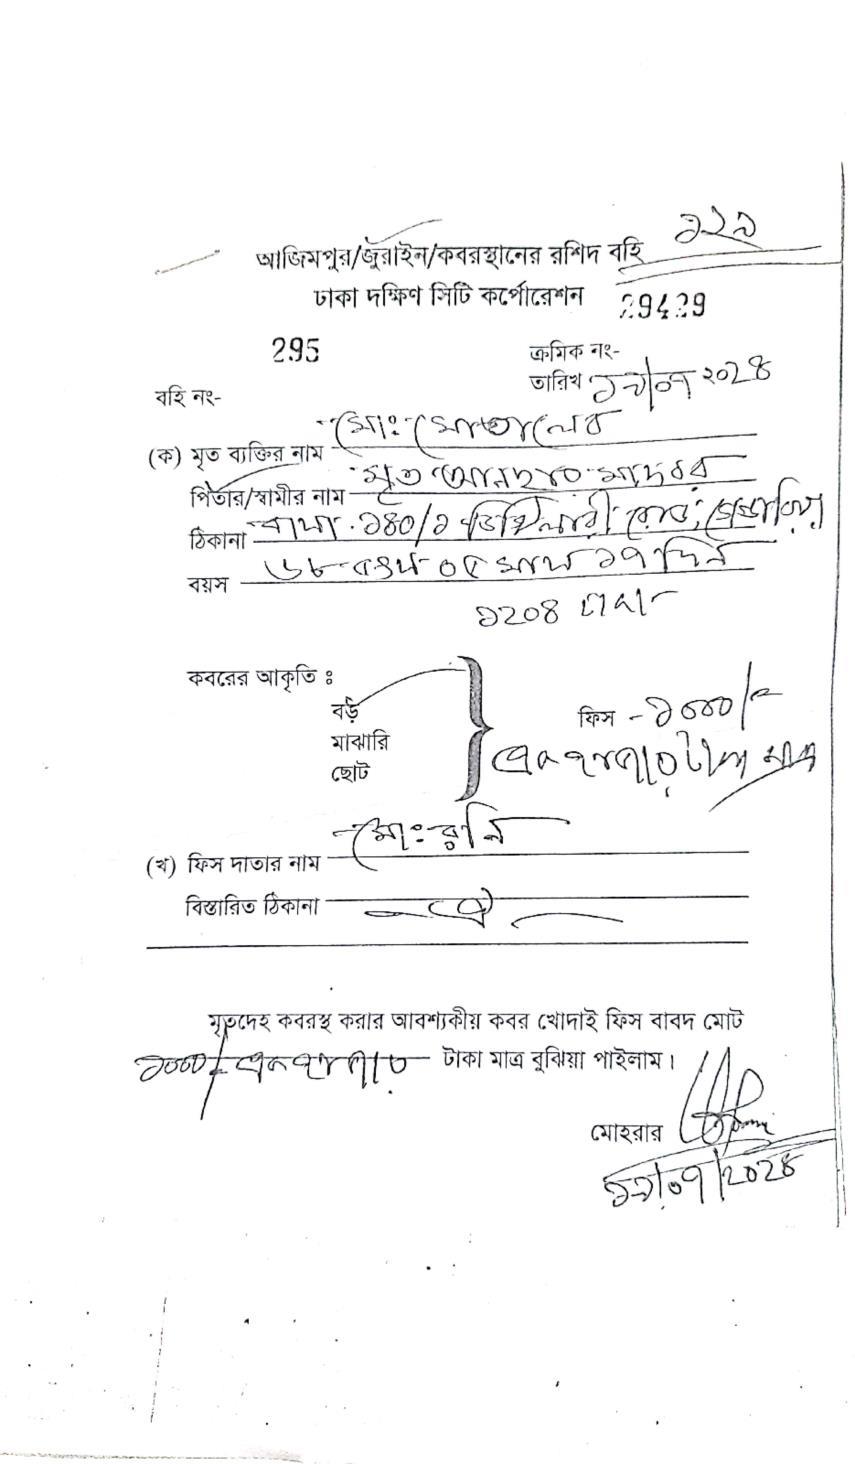 ১২৯
আজিমপুর/জুরাইন/কবরস্থানের রশিদ বহি
ঢাকা দক্ষিণ সিটি কর্পোরেশন
29429
295
ক্রমিক নং-
তারিখ ১৭/০৭ ২০২৪
বহি নং-
(ক) মৃত ব্যক্তির নাম মোঃ মোতালেব
পিতার/স্বামীর নাম মৃত মাদবর
ঠিকানা বাসা ১৪০/১ ডিস্টিলারী রোড, গেন্ডারিয়া
বয়স ৬৮ বৎসর ০৫ মাস ১৭ দিন
কবরের আকৃতি ঃ
বড়
মাঝারি
ছোট
ফিস - ১০০০/=
এক হাজার টাকা মাত্র
(খ) ফিস দাতার নাম মোঃ রনি
বিস্তারিত ঠিকানা - ঐ -
মৃতদেহ কবরস্থ করার আবশ্যকীয় কবর খোদাই ফিস বাবদ মোট
১০০০/= এক হাজার টাকা মাত্র বুঝিয়া পাইলাম।
মোহরার
১৭/০৭/২০২৪